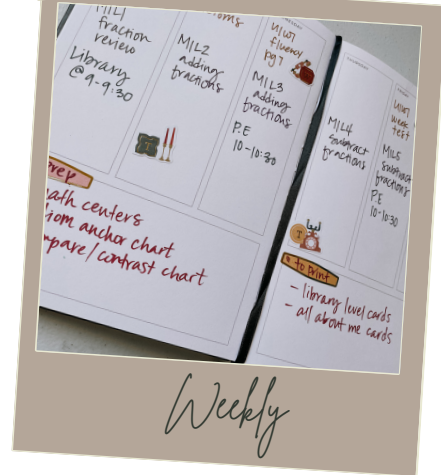 M1L1
fraction
review
Library
@ 9-9:30
M1L2
adding
fractions
U1W1
fluency
pg 7
M1L3
adding
fractions
P.E
10-10:30
M1L4
subtract
fractions
U1W1
week
test
M1L5
subtract
fractions
P.E
10-10:30
prep
math centers
idiom anchor chart
compare/contrast chart
to print
- library level cards
- all about me cards
Weekly